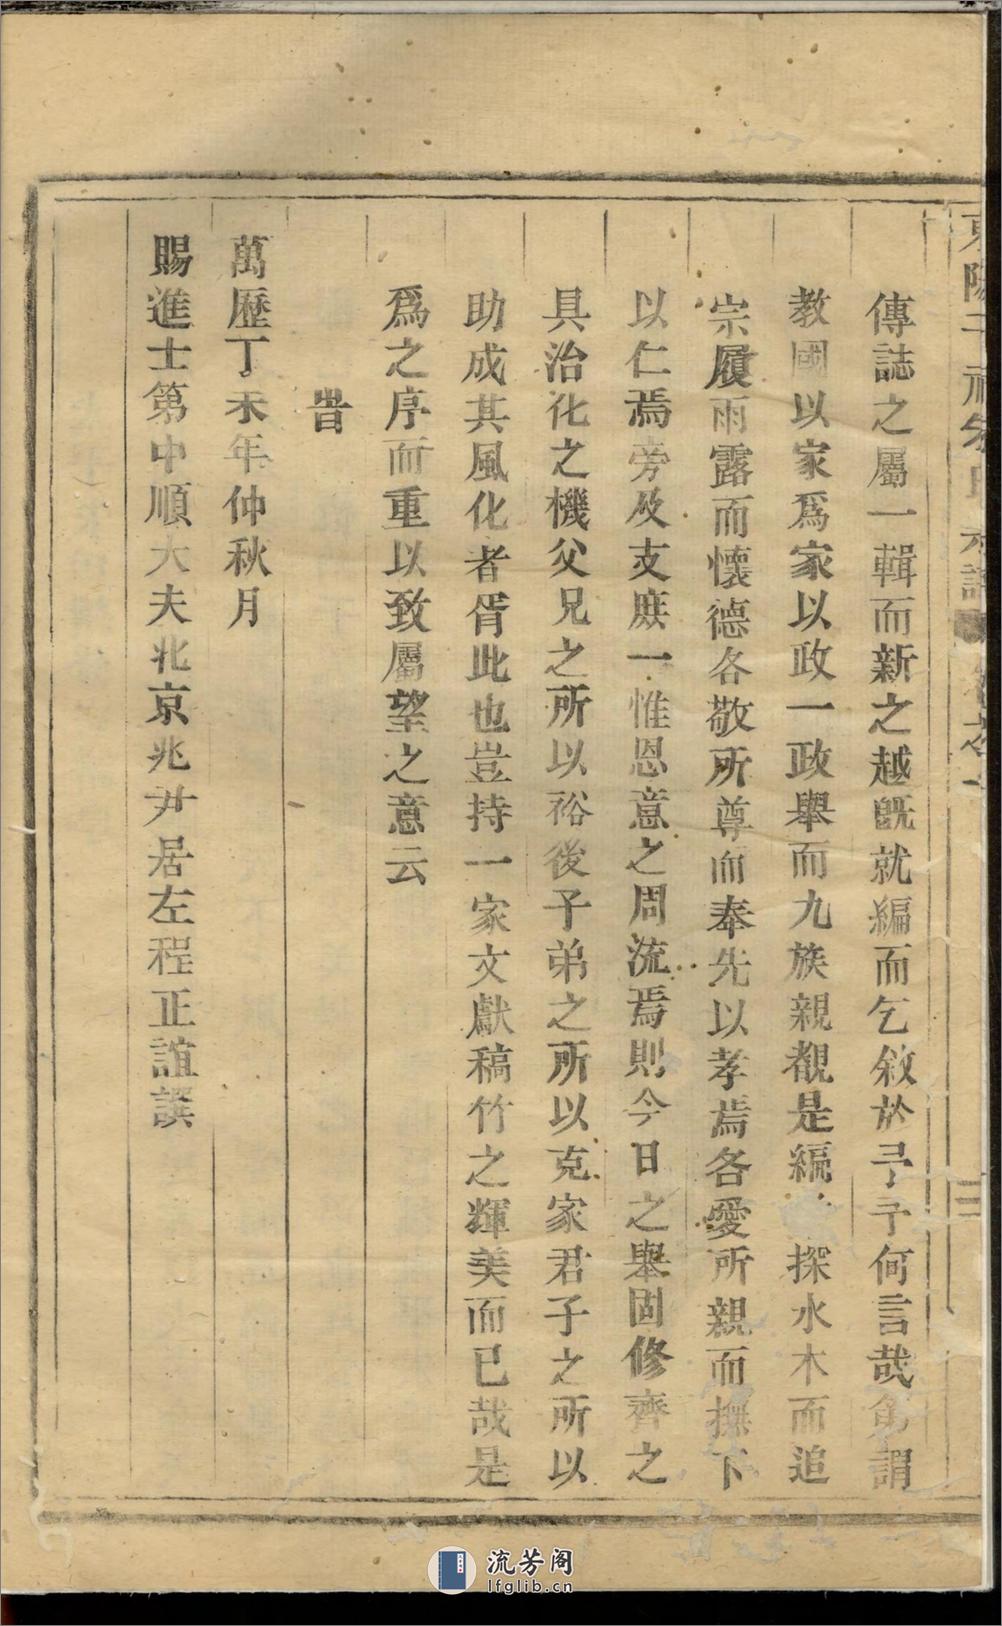 傳誌之屬一輯而新之越既就編而乞敘於予予何言哉竊謂
教國以家爲家以政一政舉而九族親覩是編探水木而追
宗履雨露而懷德各敬所尊而奉先以孝焉各愛所親而撫下
以仁焉旁及支庶一惟恩意之周流焉則今日之舉固修齊之
具治化之機父兄之所以裕後子弟之所以克家君子之所以
助成其風化者胥此也豈持一家文獻稿竹之輝美而已哉是
爲之序而重以致屬望之意云
旹
萬歷丁未年仲秋月
賜進士第中順大夫北京兆尹居左程正誼譔
流芳阁
lfglib.cn